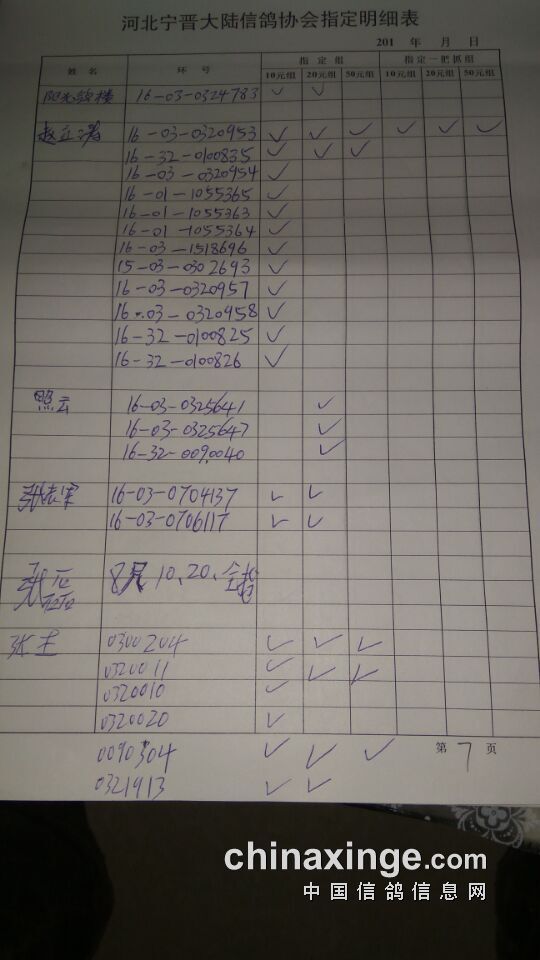 河北宁晋大陆信鸽协会指定明细表
201 年 月 日
姓名 环号 指定组 指定一把抓组
10元组 20元组 50元组 10元组 20元组 50元组
阳光鸽楼 16-03-0324783 ✓ ✓
16-03-0320953 ✓ ✓ ✓ ✓ ✓ ✓
16-32-0100835 ✓ ✓ ✓
16-03-0320954 ✓
16-01-1055365 ✓
16-01-1055363 ✓
16-01-1055364 ✓
16-03-1518696 ✓
15-03-0302693 ✓
16-03-0320957 ✓
16-03-0320958 ✓
16-32-0100825 ✓
16-32-0100826 ✓
照云 16-03-0325641 ✓
16-03-0325647 ✓
16-32-0090040 ✓
16-03-0704137 ✓ ✓
16-03-0706117 ✓ ✓
张 8只 10、20、全指
张 0300204 ✓ ✓ ✓
0320011 ✓ ✓ ✓
0320010 ✓
0320020 ✓
0090304 ✓ ✓ ✓
第 7 页
0321913 ✓ ✓
chinaxinge.com
中国信鸽信息网